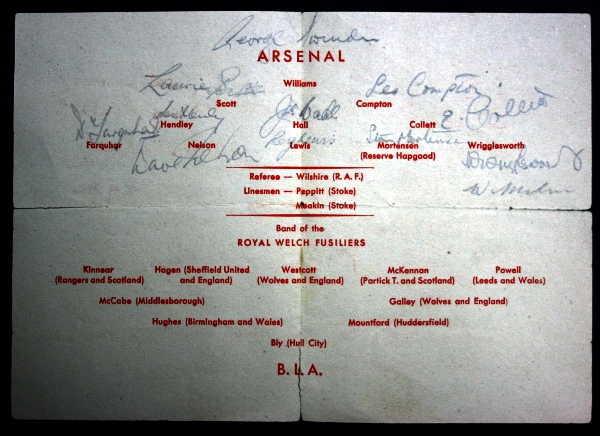 George
ARSENAL
Williams
Laurie Scott Leo Compton
Scott Compton
Hendley Hall Collett E Collett
D. Farquhar
Farquhar Nelson Lewis Mortensen Wrigglesworth
(Reserve Hapgood)
Dave Nelson
Referee — Wilshire (R. A. F.)
Linesmen — Peppitt (Stoke)
Meakin (Stoke)
Band of the
ROYAL WELCH FUSILIERS
Kinnear Hagen (Sheffield United Westcott McKennan Powell
(Rangers and Scotland) and England) (Wolves and England) (Partick T. and Scotland) (Leeds and Wales)
McCabe (Middlesborough) Galley (Wolves and England)
Hughes (Birmingham and Wales) Mountford (Huddersfield)
Bly (Hull City)
B.L.A.